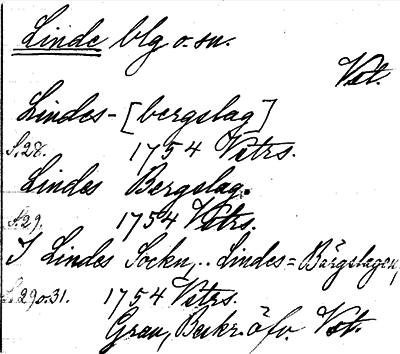 Linde blg o. sn.
Vstl.
Lindes-[bergslag]
S. 28. 1754 Vstrs.
Lindes Bergslag.
S. 29. 1754 Vstrs.
I Lindes Socken,.. Lindes=Bärgslagen,
S. 29 o. 31. 1754 Vstrs.
Grau, Beskr. öfv. Vstl.